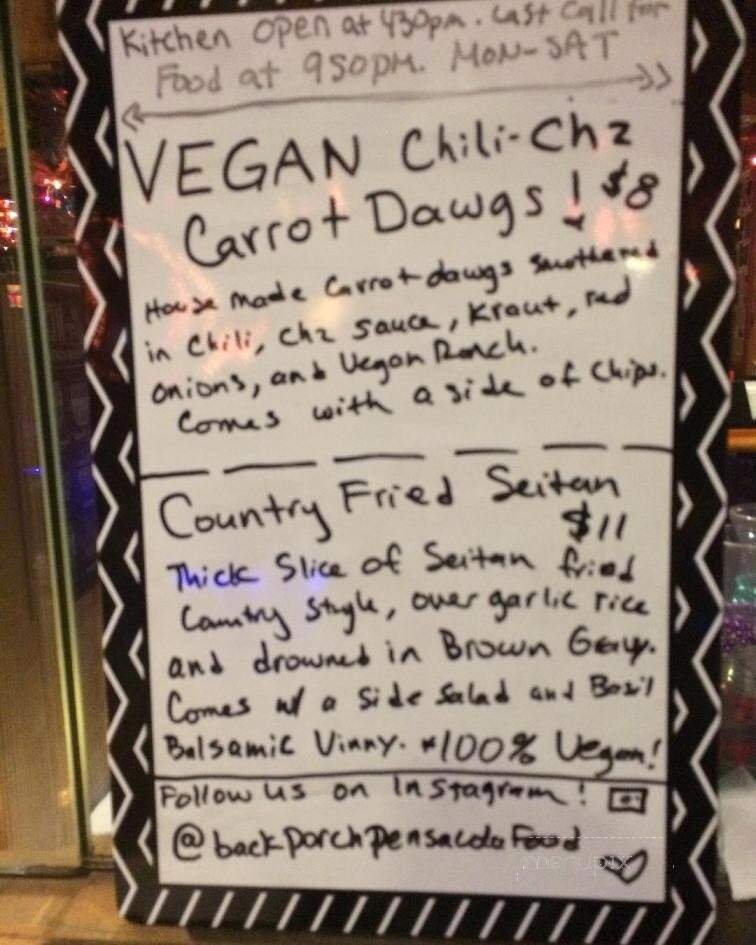 Kitchen open at 430pm. Last Call for
Food at 950pm. MON-SAT
VEGAN Chili-Chz
Carrot Dawgs! $8
House made Carrot dawgs smothered
in Chili, Chz sauce, Kraut, red
onions, and Vegan Ranch.
Comes with a side of Chips.
Country Fried Seitan
$11
Thick Slice of Seitan fried
Country Style, over garlic rice
and drowned in Brown Gravy.
Comes w/ a side salad and Basil
Balsamic Vinny. *100% Vegan!
Follow us on Instagram!
@backporchpensacolaFood
menupix